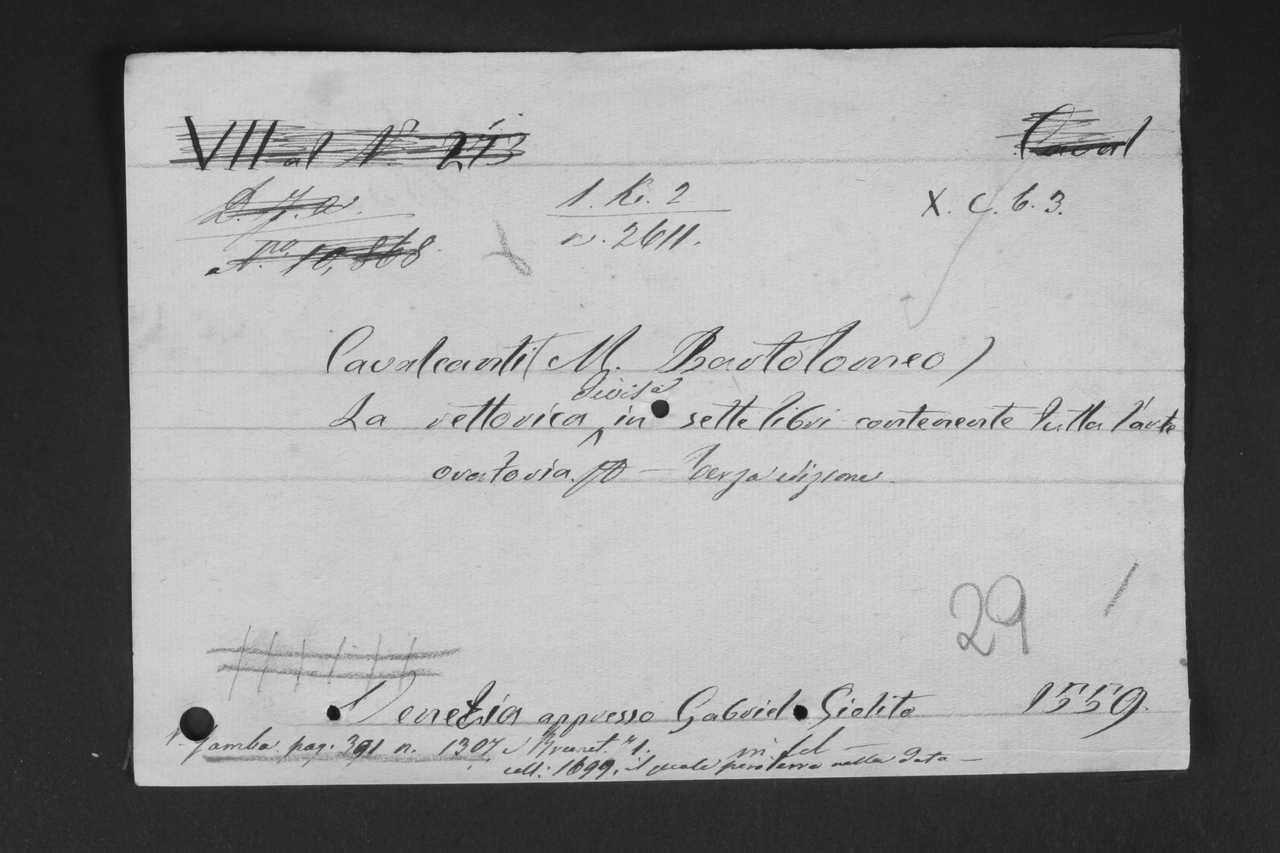 VII al N.º 213
Caval
D. 7. a.
1. K. 2
X. C. 6. 3.
N.ro 10,868
n. 2611.
Cavalcanti (M. Bartolomeo)
divisa
La rettorica in sette libri contenente tutta l'arte
oratoria. — terza edizione.
29
Venezia appresso Gabriel Giolito 1559.
Gamba. pag. 391 n. 1307 e Brunet. "1.
in fol —
coll. 1699, il quale però erra nella data —